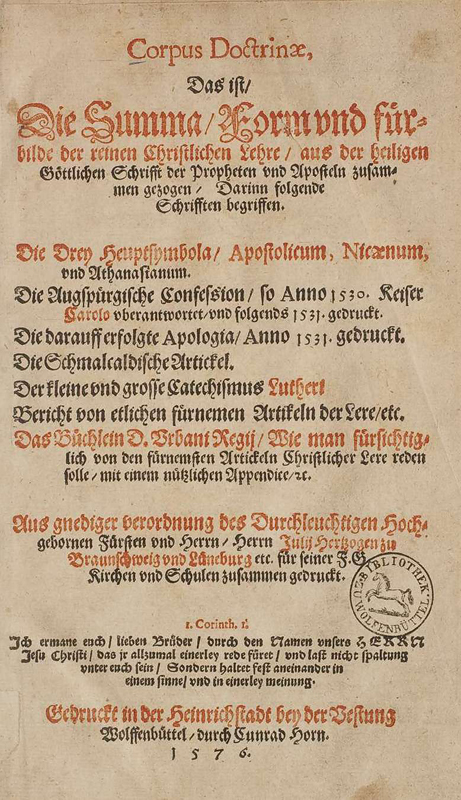 Corpus Doctrinæ,
Das ist/
Die Summa/ Form vnd für-
bilde der reinen Christlichen Lehre/ aus der heiligen
Göttlichen Schrifft der Propheten vnd Aposteln zusam-
men gezogen/ Darinn folgende
Schrifften begriffen.
Die Drey Heuptsymbola/ Apostolicum, Nicænum,
vnd Athanasianum.
Die Augspürgische Confession/ so Anno 1530. Keiser
Carolo vberantwortet/ vnd folgends 1531. gedruckt.
Die darauff erfolgte Apologia/ Anno 1531. gedruckt.
Die Schmalcaldische Artickel.
Der kleine vnd grosse Catechismus Lutheri
Bericht von etlichen fürnemen Artikeln der Lere/etc.
Das Büchlein D. Vrbani Regij/ Wie man fürsichtig-
lich von den fürnemsten Artickeln Christlicher Lere reden
solle/ mit einem nützlichen Appendice/ꝛc.
Aus gnediger verordnung des Durchleuchtigen Hoch-
gebornen Fürsten vnd Herrn/ Herrn Julij Hertzogen zu
Braunschweig vnd Lüneburg etc. für seiner F.G
Kirchen vnd Schulen zusammen gedruckt.
BIBLIOTHEK
WOLFENBÜTTEL
1. Corinth. 1.
Ich ermane euch/ lieben Brüder/ durch den Namen vnsers HERRN
Jesu Christi/ das jr allzumal einerley rede füret/ vnd last nicht spaltung
vnter euch sein/ Sondern haltet fest aneinander in
einem sinne/ vnd in einerley meinung.
Gedruckt in der Heinrichstadt bey der Vestung
Wolffenbüttel/ durch Cunrad Horn.
1576.